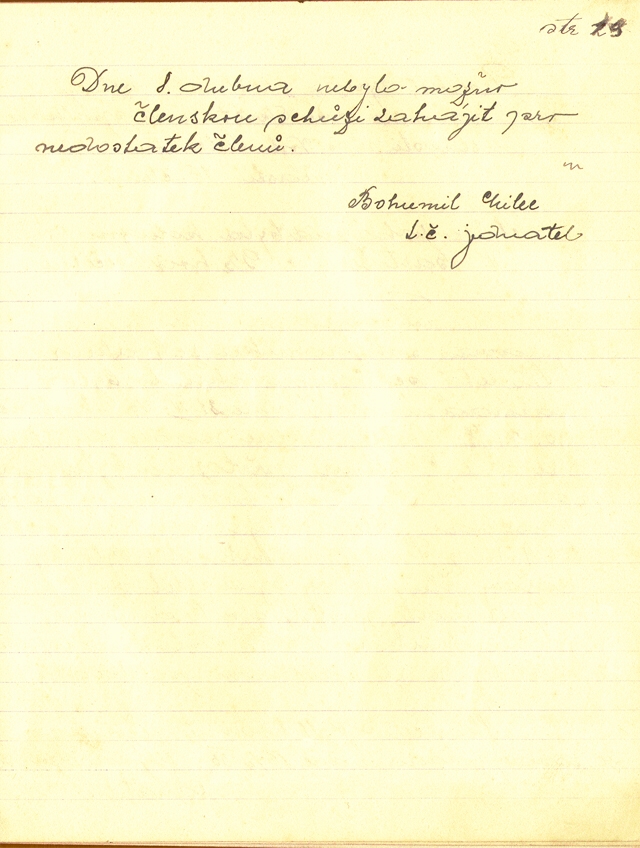 str 29
Dne 8. dubna nebylo možno
členskou schůzi zahájit pro
nedostatek členů.
Bohumil
t. č. jednatel